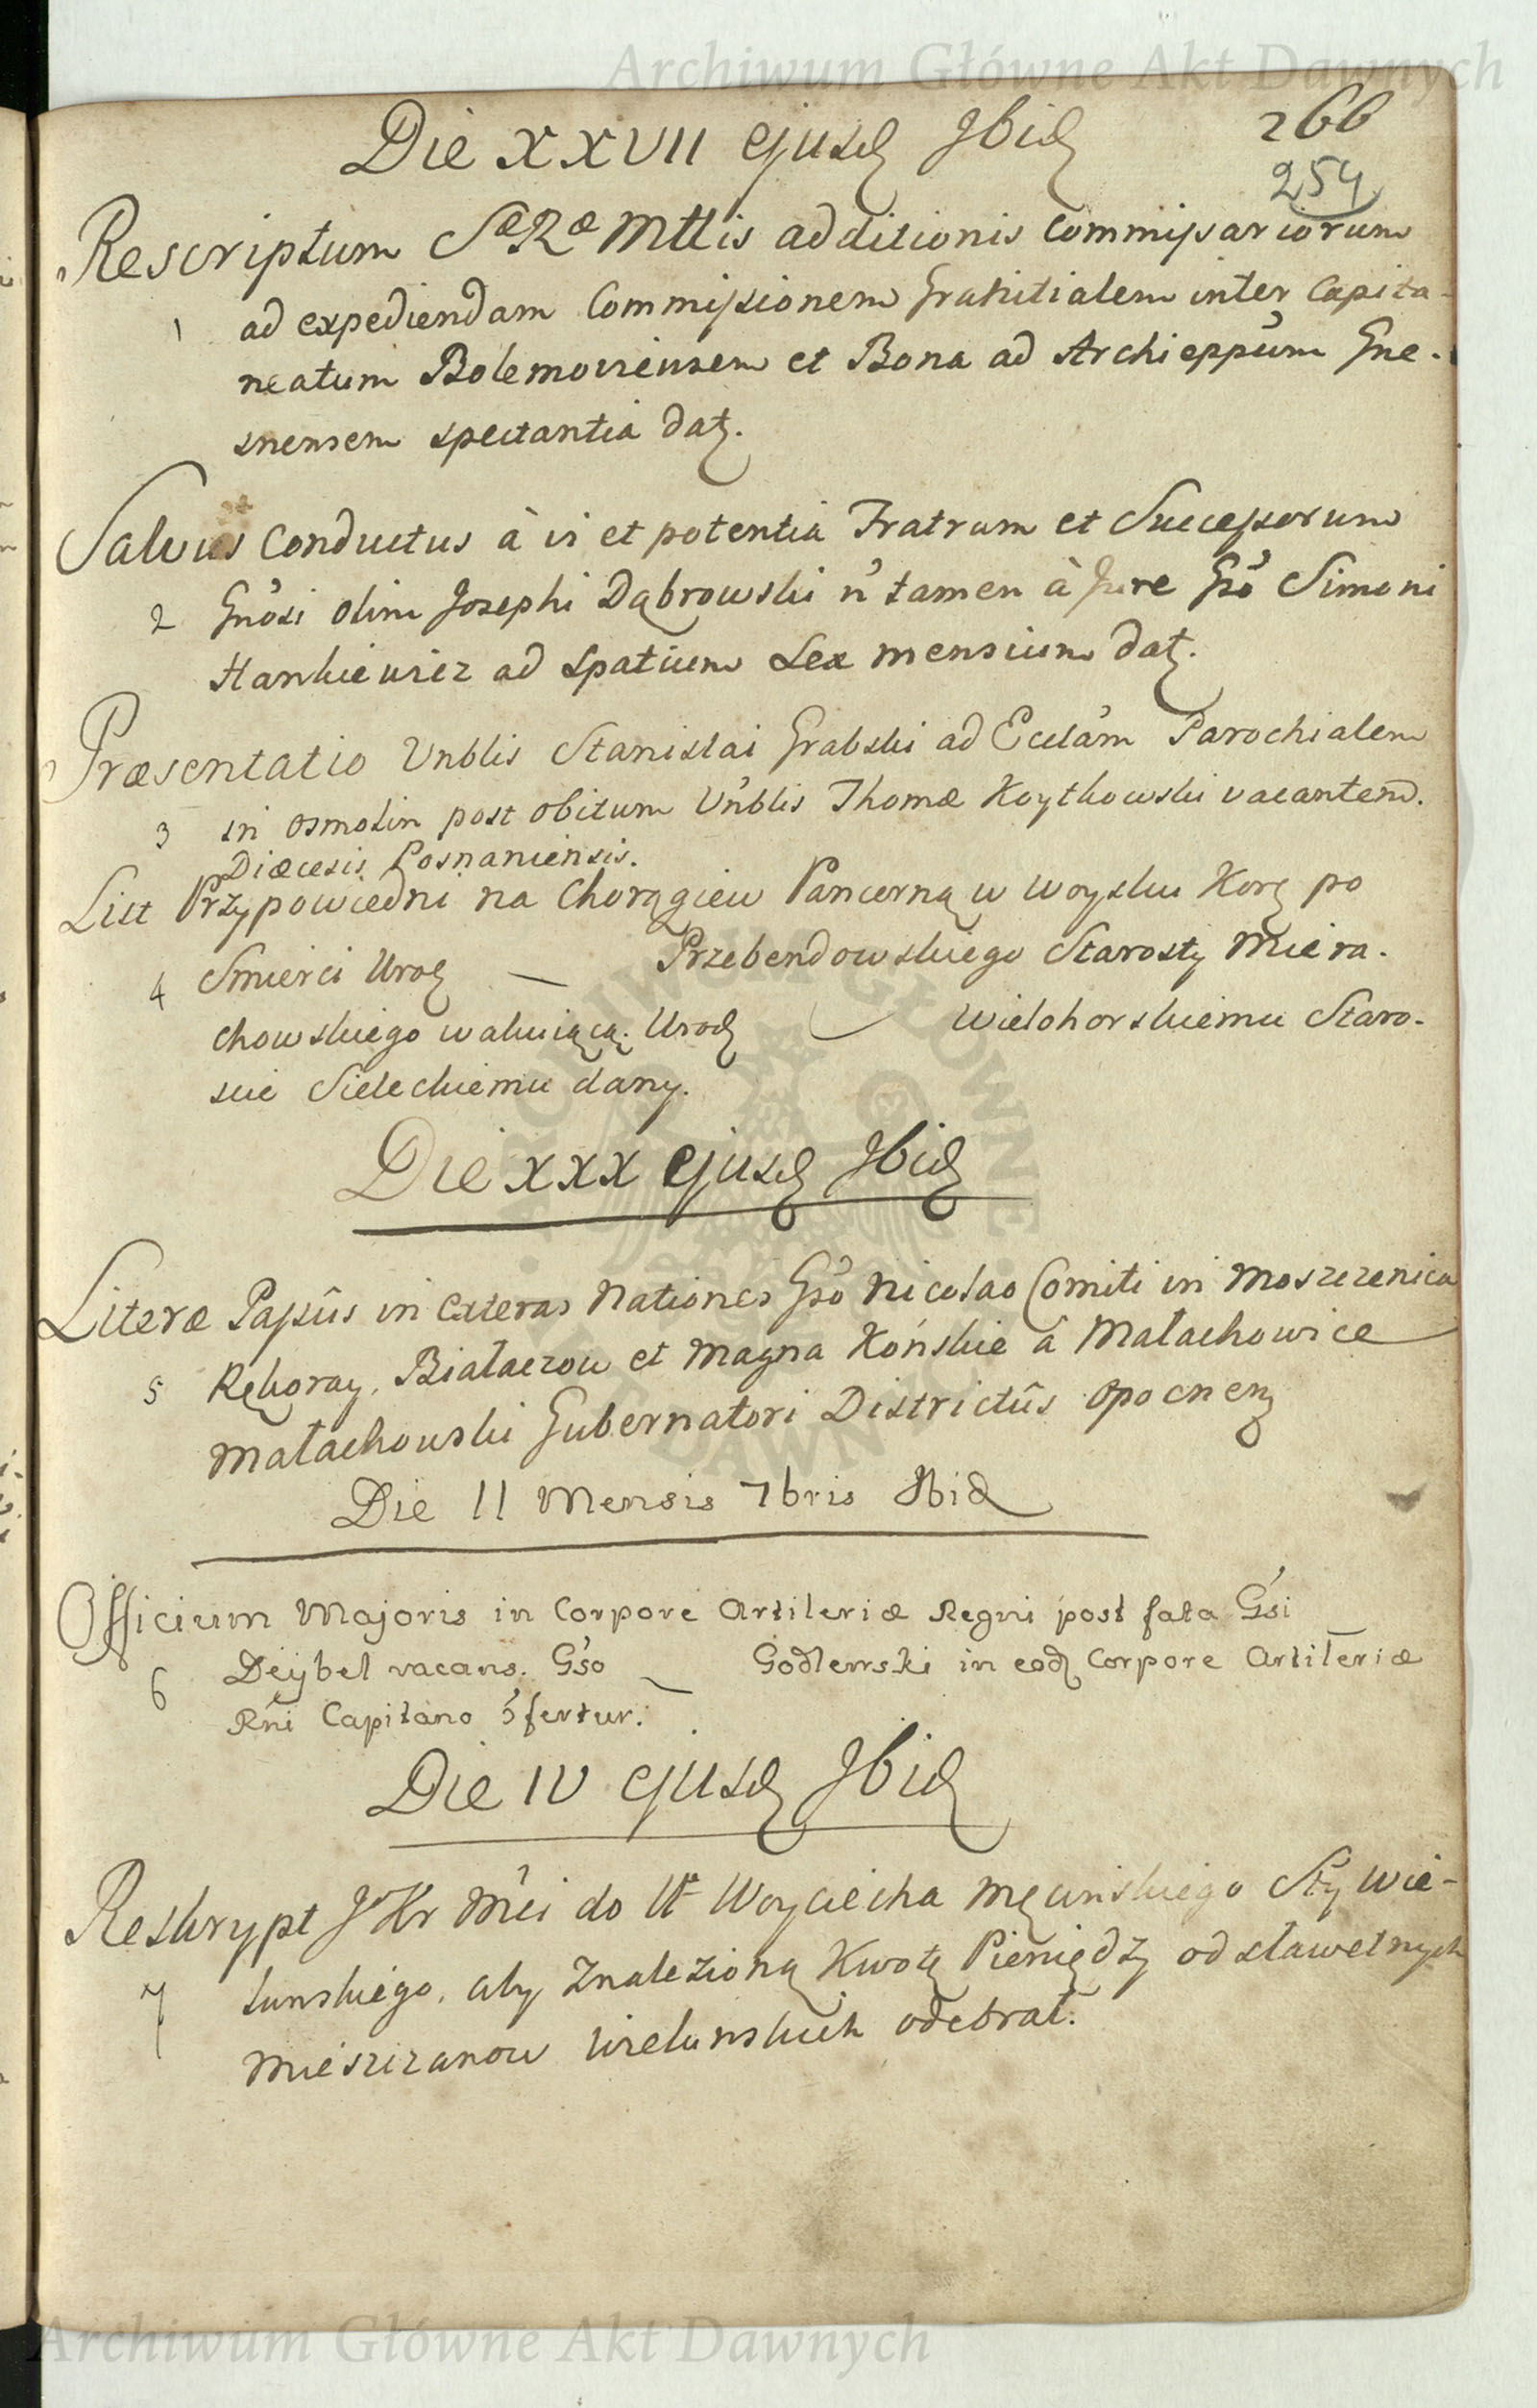 Archiwum Główne Akt Dawnych
266
254
Die XXVII ejusd Ibid
Rescriptum SæRæ Mttis additionis Commissariorum
1 ad expediendam Commissionem Granitialem inter Capita-
neatum Bolemoviensem et Bona ad Archieppūm Gne-
snensem spectantia dat.
Salvus Conductus à vi et potentia Fratrum et Successorum
2 Gnōsi olim Josephi Dąbrowski n̄ tamen à Jure Gsō Simoni
Hankiewicz ad Spatium Sex mensium dat.
Præsentatio Vnblis Stanislai Grabski ad Ecclām Parochialem
3 in Osmolin post obitum Vnblis Thomæ Koytkowski vacantem.
Diæcesis Posnaniensis.
List Przypowiedni na Chorągiew Pancerną w woysku Kor po
4 Smierci Urod — Przebendowskiego Starosty Miera-
chowskiego wakuiącą. Urod Wielohorskiemu Staro-
scie Sieleckiemu dany.
Die XXX ejusd Ibid
Literæ Passûs in Exteras Nationes Gsō Nicolao Comiti in Moszczenica
5 Rękoray, Białaczow et Magna Końskie à Małachowice
Małachowski Gubernatori Districtûs Opocnen
Die II Mensis 7bris Ibid
Officium Majoris in Corpore Artileriæ Regni post fata Gsi
6 Deybel vacans. Gso — Godlewski in eod Corpore Artileriæ
Rni Capitano ɔfertur.
Die IV ejusd Ibid
Reskrypt JKr Mci do Ur Woyciecha Męcinskiego Sty Wie-
7 lunskiego, aby Znalezioną Kwotę Pieniędzy od sławetnych
Mieszczanow Wielunskich odebrał.
Archiwum Główne Akt Dawnych